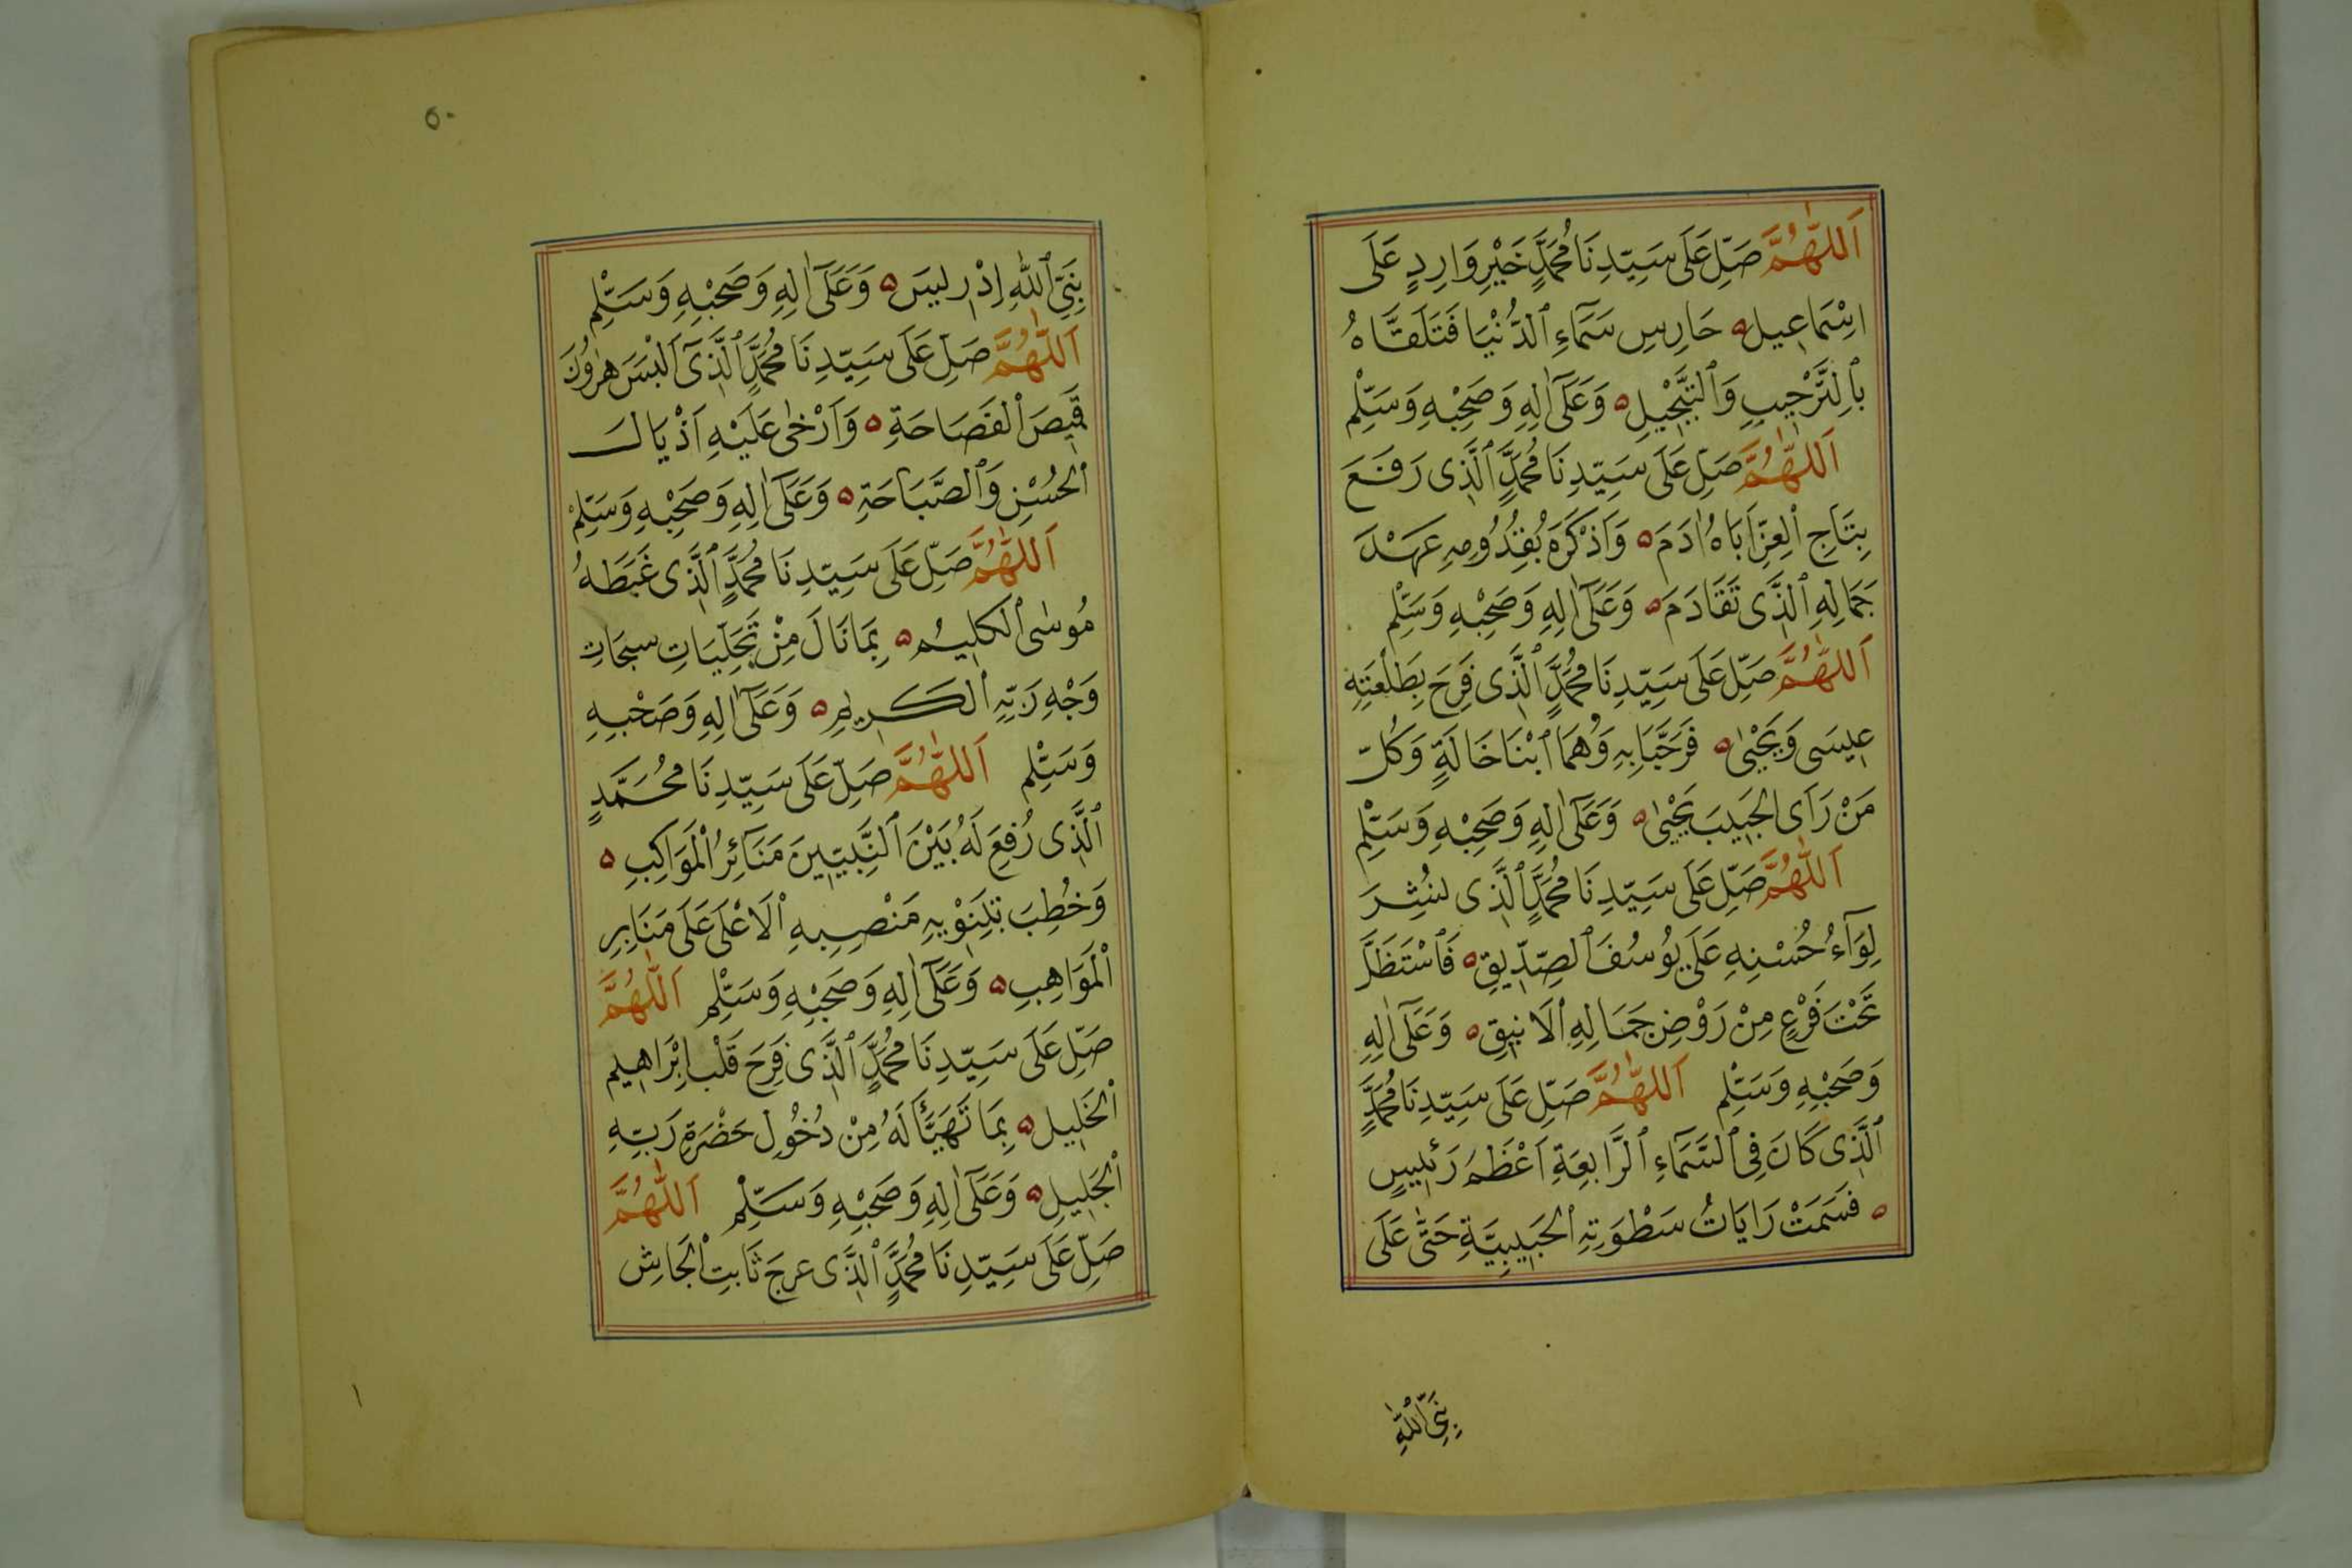 اَللّٰهُمَّ صَلِّ عَلَى سَيِّدِنَا مُحَمَّدٍ خَيْرِ وَارِدٍ عَلَى
اِسْمَاعِيلَ ه حَارِسِ سَمَآءِ ٱلدُّنْيَا فَتَلَقَّاهُ
بِٱلتَّرْجِيبِ وَٱلتَّبْجِيلِ ه وَعَلَىٓ اٰلِهِ وَصَحْبِهِ وَسَلِّمْ
اَللّٰهُمَّ صَلِّ عَلَى سَيِّدِنَا مُحَمَّدٍ ٱلَّذِى رَفَعَ
بِتَاجِ ٱلْعِزِّ اَبَاهُ اٰدَمَ ه وَاَذْكَرَهُ بِقُدُومِهِ عَهْدَ
جَمَالِهِ ٱلَّذِى تَقَادَمَ ه وَعَلَىٓ اٰلِهِ وَصَحْبِهِ وَسَلِّمْ
اَللّٰهُمَّ صَلِّ عَلَى سَيِّدِنَا مُحَمَّدٍ ٱلَّذِى فَرِحَ بِطَلْعَتِهِ
عِيسَى وَيَحْيٰى ه فَرَحَّبَا بِهِ وَهُمَا ٱبْنَا خَالَةٍ وَكُلّ
مَنْ رَاَى الْحَبِيبَ يَحْيٰى ه وَعَلَىٓ اٰلِهِ وَصَحْبِهِ وَسَلِّمْ
اَللّٰهُمَّ صَلِّ عَلَى سَيِّدِنَا مُحَمَّدٍ ٱلَّذِى نُشِرَ
لِوَآءُ حُسْنِهِ عَلَى يُوسُفَ ٱلصِّدِّيقِ ه فَٱسْتَظَلَّ
تَحْتَ فَرْعٍ مِنْ رَوْضِ جَمَالِهِ ٱلْاَنِيقِ ه وَعَلَىٓ اٰلِهِ
وَصَحْبِهِ وَسَلِّمْ اَللّٰهُمَّ صَلِّ عَلَى سَيِّدِنَا مُحَمَّدٍ
ٱلَّذِى كَانَ فِى ٱلسَّمَآءِ ٱلرَّابِعَةِ اَعْظَمَ رَئِيسٍ
ه فَسَمَتْ رَايَاتُ سَطْوَتِهِ ٱلْحَبِيبِيَّةِ حَتَّى عَلَى
نَبِىِّ ٱللّٰهِ
٥٠
نَبِىِّ ٱللّٰهِ اِدْرِيسَ ه وَعَلَىٓ اٰلِهِ وَصَحْبِهِ وَسَلِّمْ
اَللّٰهُمَّ صَلِّ عَلَى سَيِّدِنَا مُحَمَّدٍ ٱلَّذِىٓ اَلْبَسَ هٰرُونَ
قَمِيصَ ٱلْفَصَاحَةِ ه وَاَرْخٰى عَلَيْهِ اَذْيَالَ
ٱلْحُسْنِ وَٱلصَّبَاحَةِ ه وَعَلَىٓ اٰلِهِ وَصَحْبِهِ وَسَلِّمْ
اَللّٰهُمَّ صَلِّ عَلَى سَيِّدِنَا مُحَمَّدٍ ٱلَّذِى غَبَطَهُ
مُوسٰى ٱلْكَلِيمُ ه بِمَا نَالَ مِنْ تَجَلِّيَاتِ سبحَاتِ
وَجْهِ رَبِّهِ ٱلْكَرِيمِ ه وَعَلَىٓ اٰلِهِ وَصَحْبِهِ
وَسَلِّمْ اَللّٰهُمَّ صَلِّ عَلَى سَيِّدِنَا مُحَمَّدٍ
ٱلَّذِى رُفِعَ لَهُ بَيْنَ ٱلنَّبِيِّينَ مَنَآئِرُ ٱلْمَوَاكِبِ ه
وَخُطِبَ بِتَنْوِيهِ مَنْصِبِهِ ٱلْاَعْلَى عَلَى مَنَابِرِ
ٱلْمَوَاهِبِ ه وَعَلَىٓ اٰلِهِ وَصَحْبِهِ وَسَلِّمْ اَللّٰهُمَّ
صَلِّ عَلَى سَيِّدِنَا مُحَمَّدٍ ٱلَّذِى فَرِحَ قَلْب اِبْرَاهِيم
ٱلْخَلِيل ه بِمَا تَهَيَّأَ لَهُ مِنْ دُخُولِ حَضْرَةِ رَبِّهِ
ٱلْجَلِيلِ ه وَعَلَىٓ اٰلِهِ وَصَحْبِهِ وَسَلِّمْ اَللّٰهُمَّ
صَلِّ عَلَى سَيِّدِنَا مُحَمَّدٍ ٱلَّذِى عرجَ ثَابِتَ ٱلْجَاشِ
١